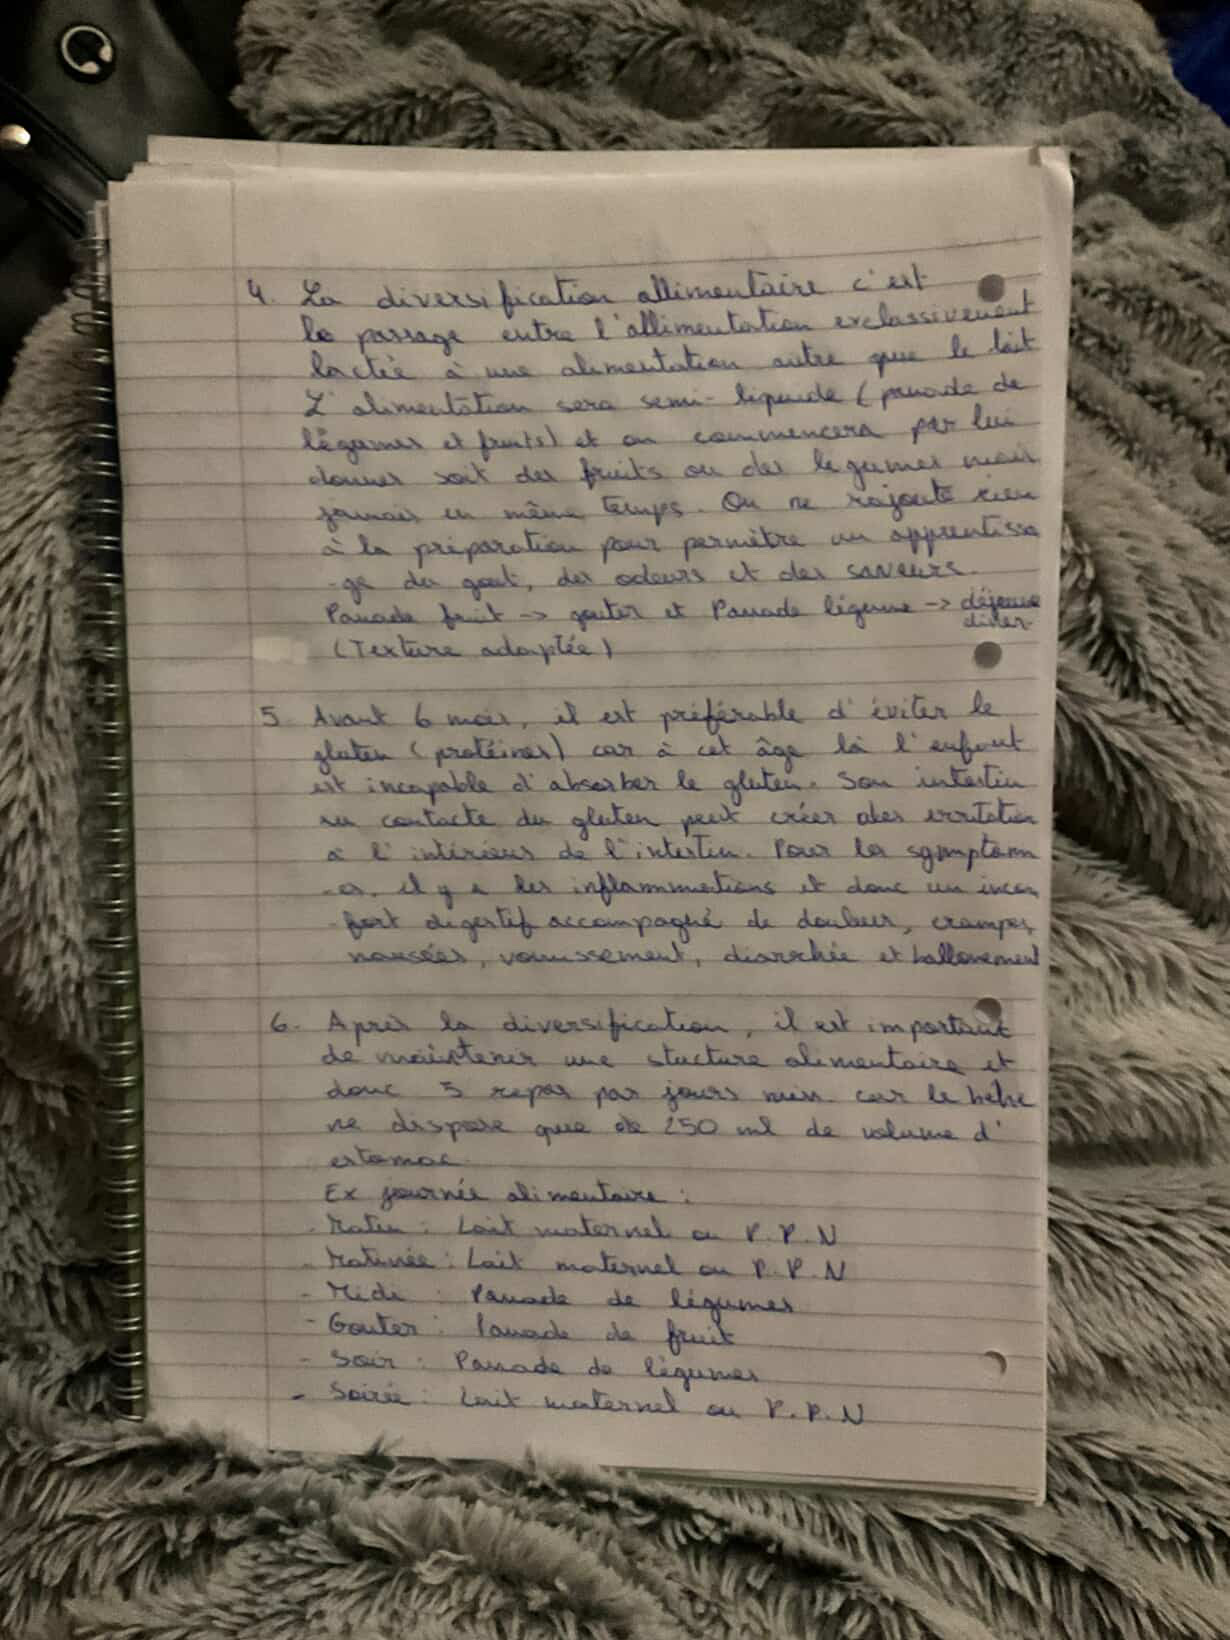 4. La diversification allimentaire c'est
le passage entre l'allimentation exclassivement
lactée à une alimentation autre que le lait
L'alimentation sera semi-liquide (panade de
légumes et fruits) et on commencera par lui
donner soit des fruits ou des légumes mais
jamais en même temps. On ne rajoute rien
à la préparation pour permètre un apprentissa
-ge du goût, des odeurs et des saveurs.
Panade fruit -> goûter et Panade légume -> déjeuné
diner.
(Texture adaptée)
5. Avant 6 mois, il est préférable d'éviter le
gluten (protéines) car à cet âge là l'enfant
est incapable d'absorber le gluten. Son intestin
au contacte du gluten peut créer des irritation
à l'intérieur de l'intestin. Pour les symptôm
-es, il y a les inflammations et donc un incon
-fort digestif accompagné de douleur, crampes,
nausées, vomissement, diarrhée et ballonement
6. Après la diversification, il est important
de maintenir une stucture alimentaire et
donc 5 repas par jours min. car le bébé
ne dispose que de 250 ml de volume d'
estomac.
Ex journée alimentaire :
- Matin : Lait maternel ou P.P.N
- Matinée : Lait maternel ou P.P.N
- Midi : Panade de légumes
- Gouter : Panade de fruit
- Soir : Panade de légumes
- Soirée : Lait maternel ou P.P.N